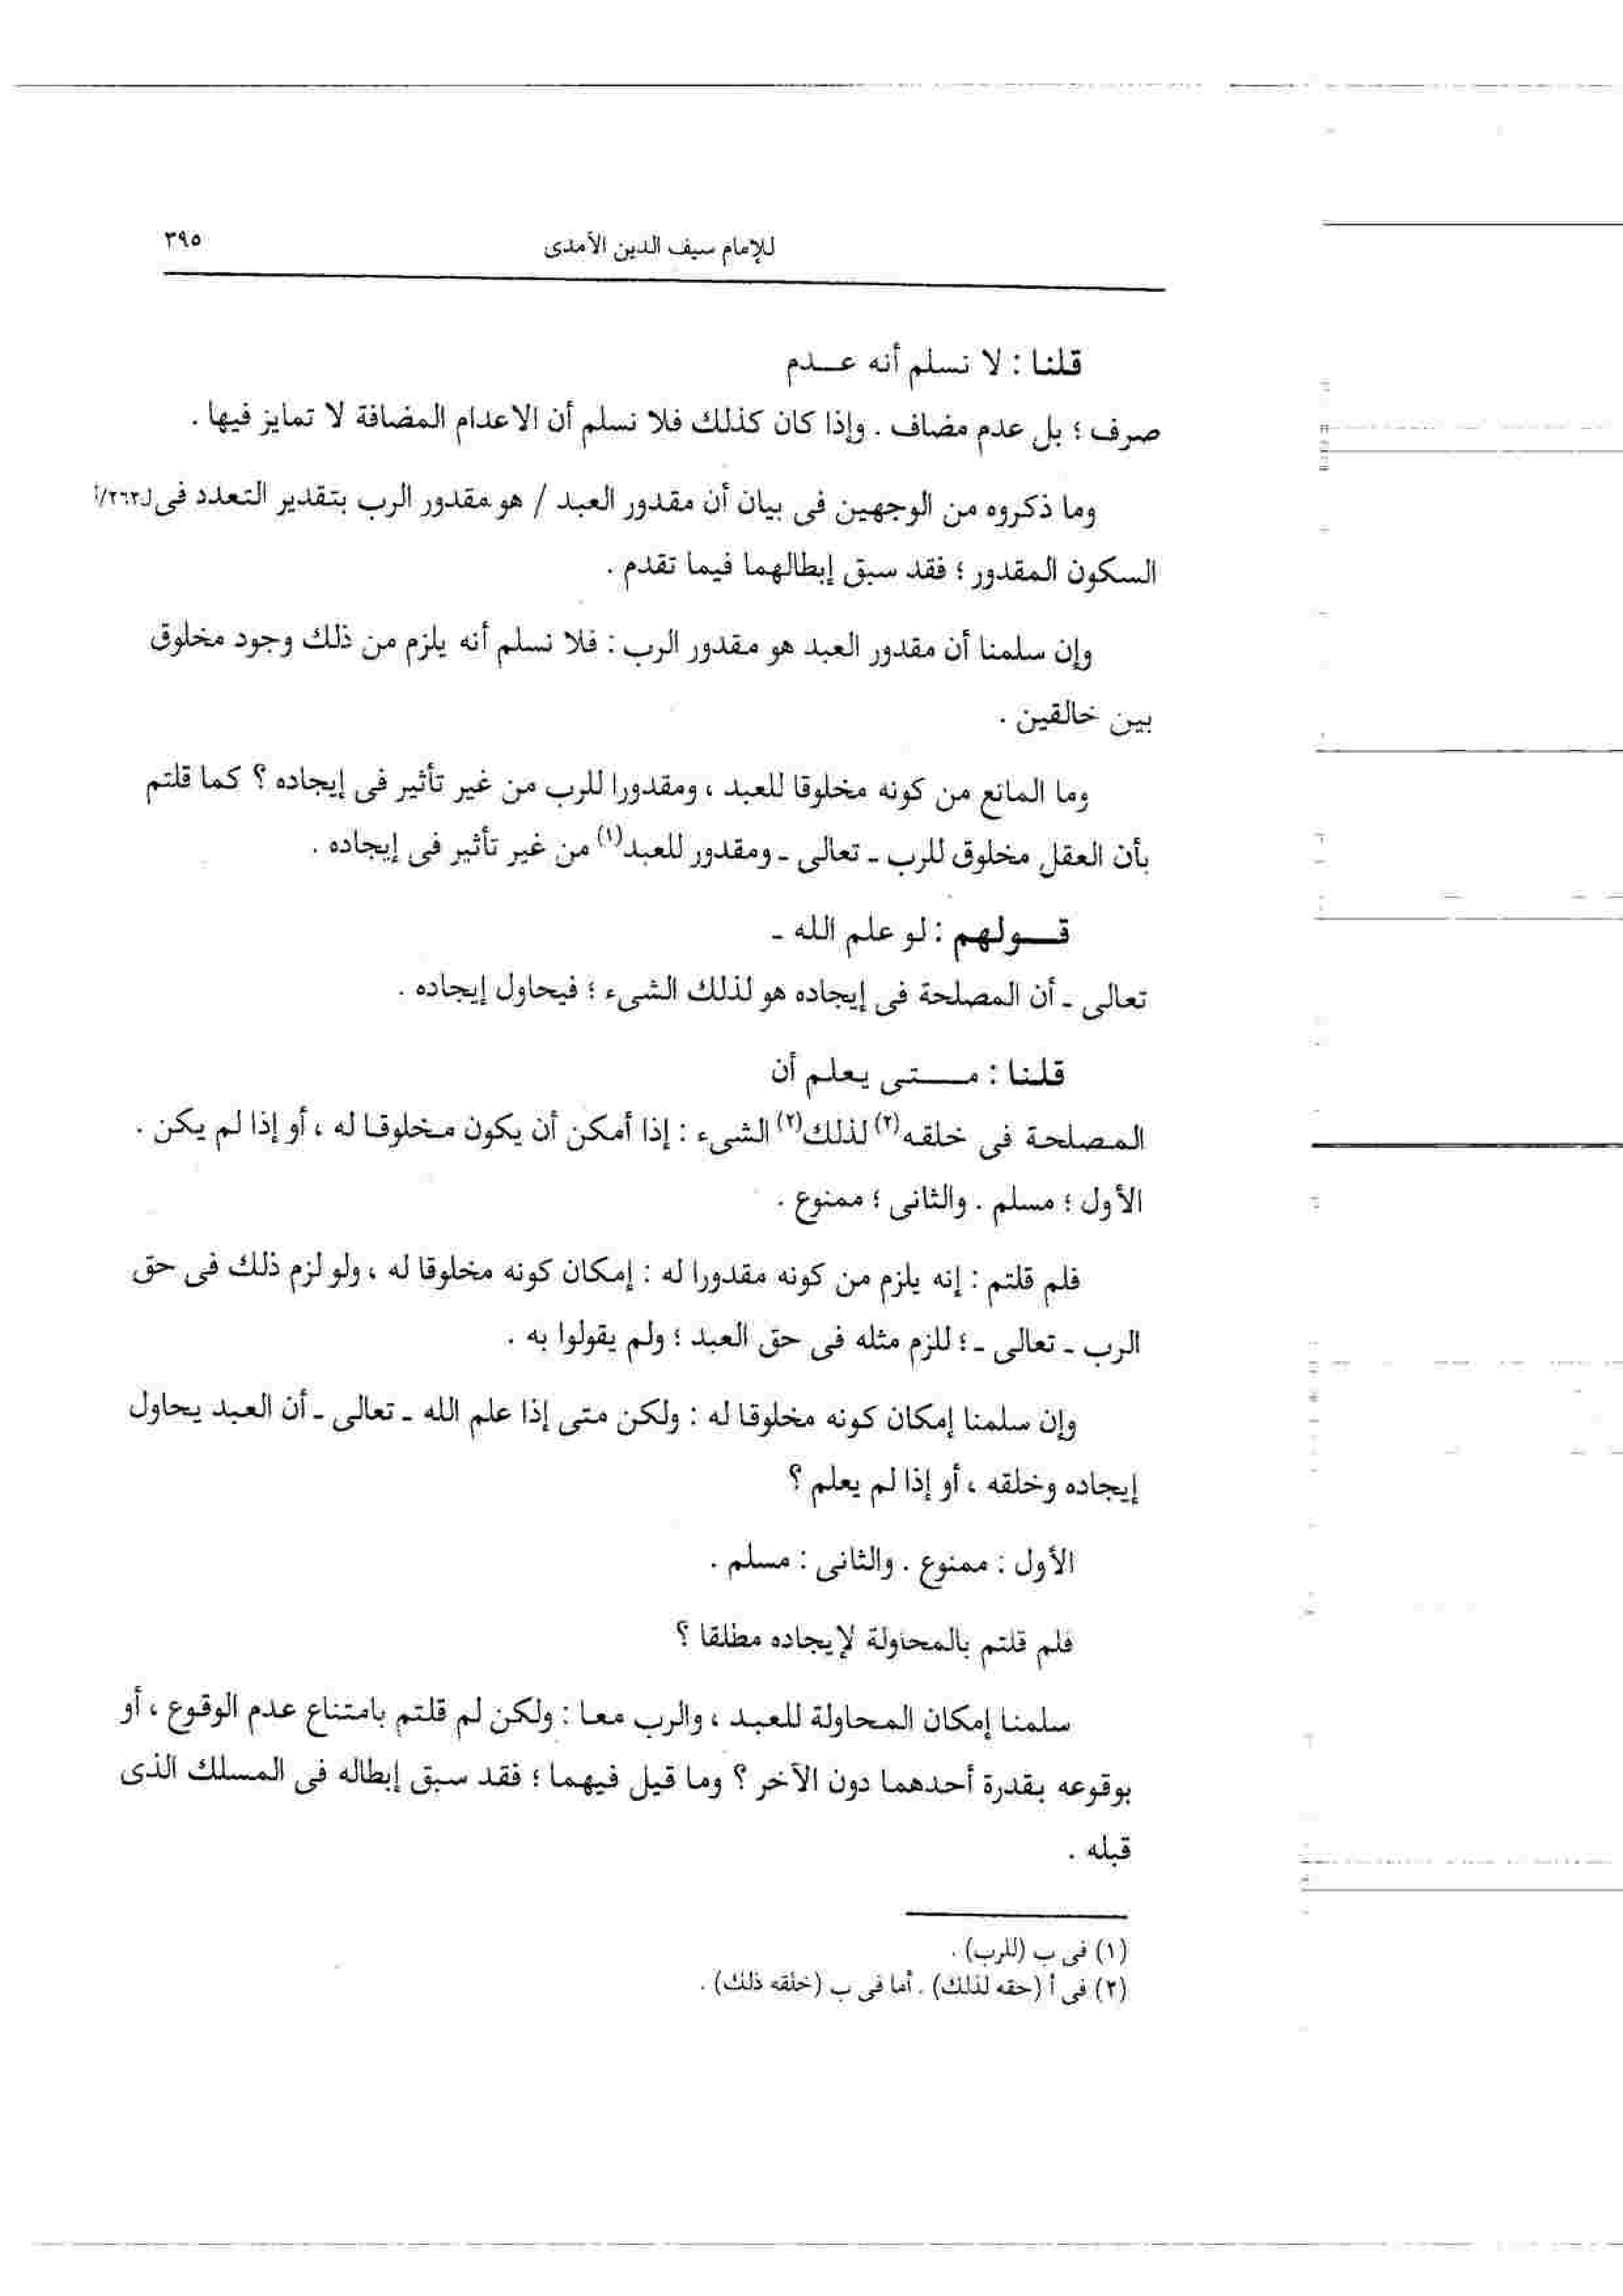 للإمام سيف الدين الآمدى
٣٩٥
قلنا : لا نسلم أنه عدم
صرف ؛ بل عدم مضاف . وإذا كان كذلك فلا نسلم أن الاعدام المضافة لا تمايز فيها .
وما ذكروه من الوجهين فى بيان أن مقدور العبد / هو مقدور الرب بتقدير التعدد فى ل٢٦٣/أ
السكون المقدور ؛ فقد سبق إبطالهما فيما تقدم .
وإن سلمنا أن مقدور العبد هو مقدور الرب : فلا نسلم أنه يلزم من ذلك وجود مخلوق
بين خالقين .
وما المانع من كونه مخلوقا للعبد ، ومقدورا للرب من غير تأثير فى إيجاده ؟ كما قلتم
بأن العقل مخلوق للرب - تعالى - ومقدور للعبد(١) من غير تأثير فى إيجاده .
قولهم : لو علم الله -
تعالى - أن المصلحة فى إيجاده هو لذلك الشىء ؛ فيحاول إيجاده .
قلنا : متى يعلم أن
المصلحة فى خلقه(٢) لذلك(٢) الشىء : إذا أمكن أن يكون مخلوقا له ، أو إذا لم يكن .
الأول ؛ مسلم . والثانى ؛ ممنوع .
فلم قلتم : إنه يلزم من كونه مقدورا له : إمكان كونه مخلوقا له ، ولو لزم ذلك فى حق
الرب - تعالى - ؛ للزم مثله فى حق العبد ؛ ولم يقولوا به .
وإن سلمنا إمكان كونه مخلوقا له : ولكن متى إذا علم الله - تعالى - أن العبد يحاول
إيجاده وخلقه ، أو إذا لم يعلم ؟
الأول : ممنوع . والثانى : مسلم .
فلم قلتم بالمحاولة لإيجاده مطلقا ؟
سلمنا إمكان المحاولة للعبد ، والرب معا : ولكن لم قلتم بامتناع عدم الوقوع ، أو
بوقوعه بقدرة أحدهما دون الآخر ؟ وما قيل فيهما ؛ فقد سبق إبطاله فى المسلك الذى
قبله .
(١) فى ب (للرب) .
(٢) فى أ (حقه لذلك) . أما فى ب (خلقه ذلك) .